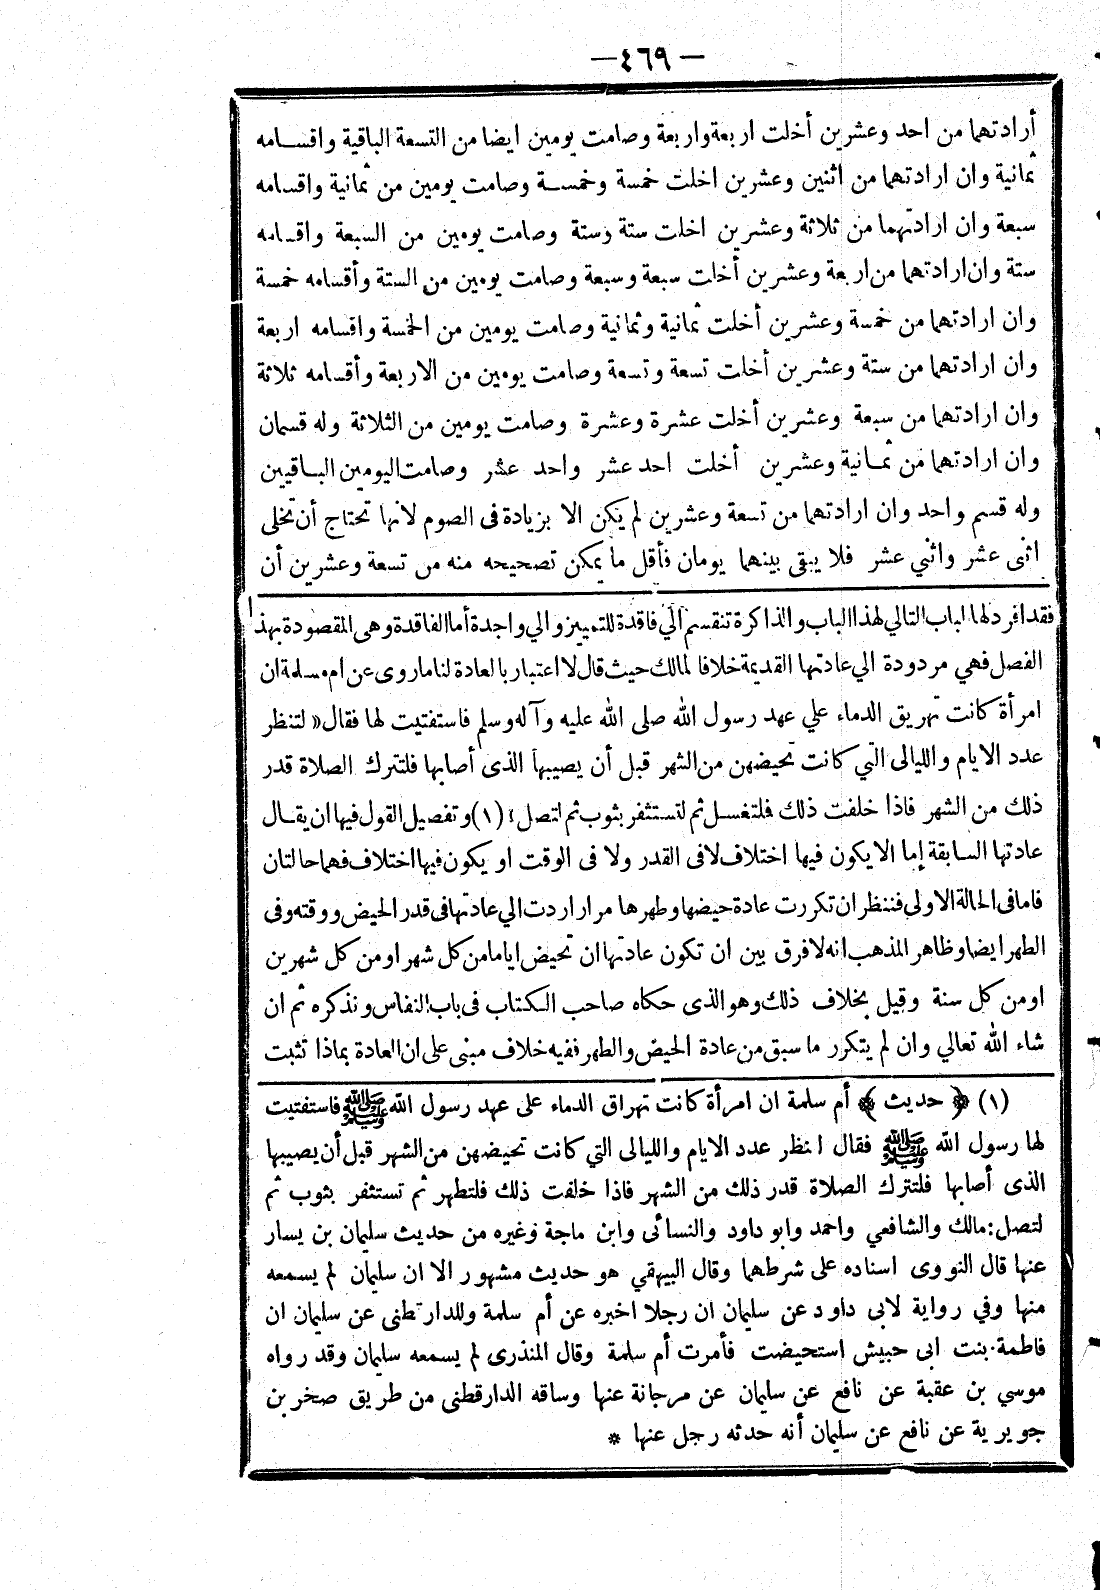 — ٤٦٩ —
أرادتهما من احد وعشرين أخلت اربعة واربعة وصامت يومين ايضا من التسعة الباقية واقسامه
ثمانية وان ارادتهما من اثنين وعشرين اخلت خمسة وخمسة وصامت يومين من ثمانية واقسامه
سبعة وان ارادتهما من ثلاثة وعشرين اخلت ستة وستة وصامت يومين من السبعة واقسامه
ستة وان ارادتهما من اربعة وعشرين أخلت سبعة وسبعة وصامت يومين من الستة وأقسامه خمسة
وان ارادتهما من خمسة وعشرين أخلت ثمانية وثمانية وصامت يومين من الخمسة واقسامه اربعة
وان ارادتهما من ستة وعشرين أخلت تسعة وتسعة وصامت يومين من الاربعة وأقسامه ثلاثة
وان ارادتهما من سبعة وعشرين أخلت عشرة وعشرة وصامت يومين من الثلاثة وله قسمان
وان ارادتهما من ثمانية وعشرين أخلت احد عشر واحد عشر وصامت اليومين الباقيين
وله قسم واحد وان ارادتهما من تسعة وعشرين لم يكن الا بزيادة فى الصوم لانها تحتاج أن تخلى
اثنى عشر واثني عشر فلا يبقى بينهما يومان فأقل ما يمكن تصحيحه منه من تسعة وعشرين أن
فقد افرد لها الباب التالي لهذا الباب والذاكرة تنقسم الي فاقدة للتمييز والي واجدة أما الفاقدة وهى المقصودة بهذا
الفصل فهي مردودة الي عادتها القديمة خلافا لمالك حيث قال لا اعتبار بالعادة لنا ما روى عن ام سلمة ان
امرأة كانت تهريق الدماء علي عهد رسول الله صلى الله عليه وآله وسلم فاستفتيت لها فقال « لتنظر
عدد الايام والليالى التي كانت تحيضهن من الشهر قبل أن يصيبها الذى أصابها فلتترك الصلاة قدر
ذلك من الشهر فاذا خلفت ذلك فلتغسل ثم لتستثفر بثوب ثم لتصل » (١) وتفصيل القول فيها ان يقال
عادتها السابقة إما الا يكون فيها اختلاف لا فى القدر ولا فى الوقت او يكون فيها اختلاف فهما حالتان
فاما فى الحالة الاولى فننظر ان تكررت عادة حيضها وطهرها مرارا ردت الي عادتها فى قدر الحيض ووقته وفى
الطهر ايضا وظاهر المذهب انه لا فرق بين ان تكون عادتها ان تحيض اياما من كل شهر او من كل شهرين
او من كل سنة وقيل بخلاف ذلك وهو الذى حكاه صاحب الكتاب فى باب النفاس ونذكره ثم ان
شاء الله تعالي وان لم يتكرر ما سبق من عادة الحيض والطهر ففيه خلاف مبنى على ان العادة بماذا تثبت
(١) ﴿ حديث ﴾ أم سلمة ان امرأة كانت تهراق الدماء على عهد رسول الله ﷺ فاستفتيت
لها رسول الله ﷺ فقال انظر عدد الايام والليالى التي كانت تحيضهن من الشهر قبل أن يصيبها
الذى أصابها فلتترك الصلاة قدر ذلك من الشهر فاذا خلفت ذلك فلتطهر ثم تستثفر بثوب ثم
لتصل: مالك والشافعي واحمد وابو داود والنسائى وابن ماجة وغيره من حديث سليمان بن يسار
عنها قال النووى اسناده على شرطهما وقال البيهقي هو حديث مشهور الا ان سليمان لم يسمعه
منها وفي رواية لابى داود عن سليمان ان رجلا اخبره عن أم سلمة وللدارقطنى عن سليمان ان
فاطمة بنت ابى حبيش استحيضت فأمرت أم سلمة وقال المنذرى لم يسمعه سليمان وقد رواه
موسي بن عقبة عن نافع عن سليمان عن مرجانة عنها وساقه الدارقطنى من طريق صخر بن
جويرية عن نافع عن سليمان أنه حدثه رجل عنها *